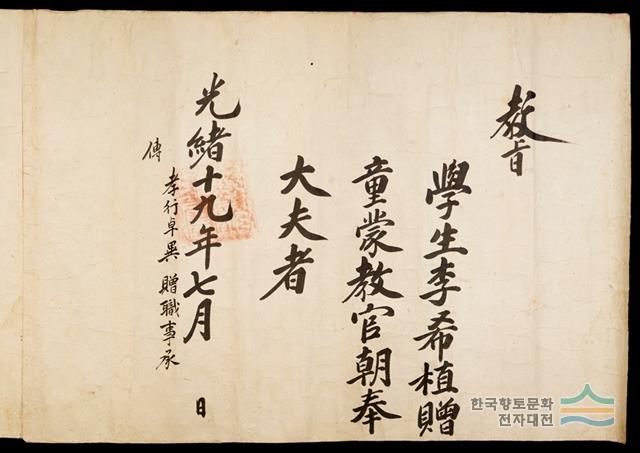 教旨
學生李希植贈
童蒙教官朝奉
大夫者
光緒十九年七月 日
孝行卓異 贈職事承
傳
한국향토문화
전자대전